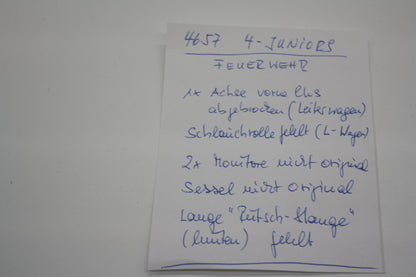 4657 4-JUNIORS
FEUERWEHR
1x Achse vorne lks
abgebrochen (Leiterwagen)
Schlauchrolle fehlt (L-Wagen)
2x Monitore nicht original
Sessel nicht original
Lange "Rutsch-Stange"
(hinten) fehlt